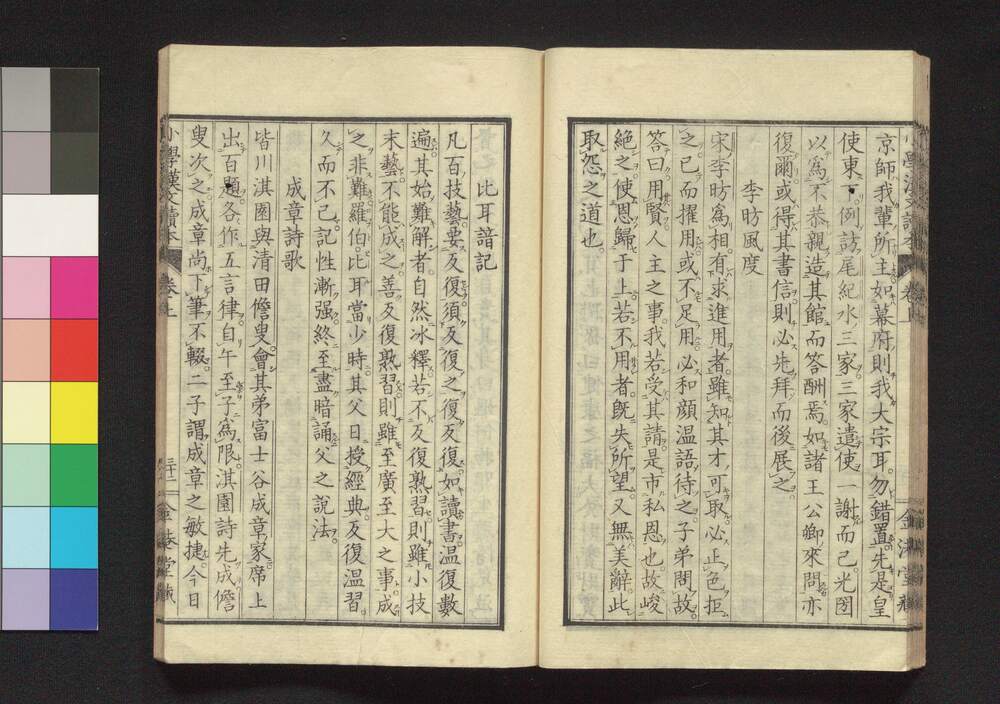 京師我輩所主如幕府則我大宗耳勿錯置先是皇
使東下例訪尾紀水三家三家遣使一謝而已光圀
以爲不恭親造其館而答酬焉如諸王公卿來問亦
復爾或得其書信則必先拜而後展之
李昉風度
宋李昉爲相有求進用者雖知其才可取必正色拒
之已而擢用或不足用必和顔溫語待之子弟問故
答曰用賢人主之事我若受其請是市私恩也故峻
絶之使恩歸于上若不用者既失所望又無美辭此
取怨之道也
比耳諳記
凡百技藝要反復須反復之復反復如讀書溫復數
遍其始難解者自然冰釋若不反復熟習則雖小技
末藝不能成之善反復熟習則雖至廣至大之事成
之非難羅伯比耳當少時其父日授經典反復溫習
久而不已記性漸强終至盡暗誦父之說法
成章詩歌
皆川淇園與清田儋叟會其弟富士谷成章家席上
出百題各作五言律自午至子爲限淇園詩先成儋
叟次之成章尚下筆不輟二子謂成章之敏捷今日
小學漢文讀本 卷之上